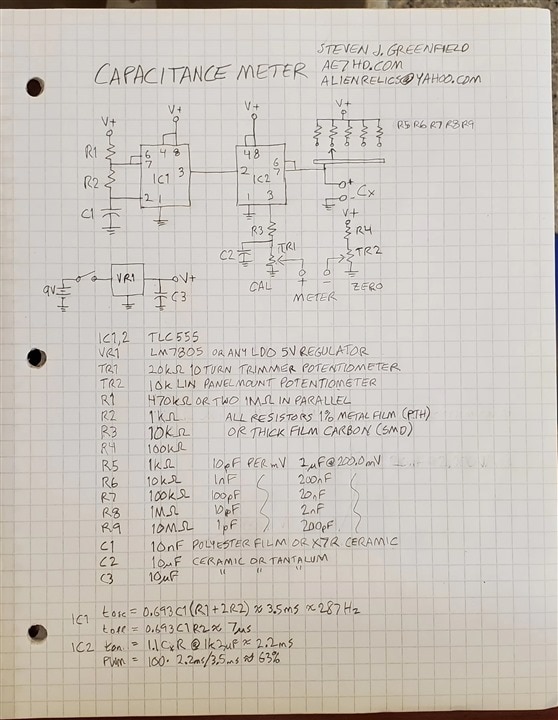 STEVEN J. GREENFIELD
AE7HD.COM
CAPACITANCE METER
ALIENRELICS@YAHOO.COM
V+
V+
V+
V+
R5 R6 R7 R8 R9
R1
6
7
4 8
IC1
3
2
1
R2
C1
4 8
2
IC2
6
7
1
3
+
-
Cx
V+
R3
C2
TR1
R4
TR2
CAL
+
-
METER
ZERO
9V
VR1
V+
C3
IC1,2 TLC555
VR1 LM7805 OR ANY LDO 5V REGULATOR
TR1 20KΩ 10 TURN TRIMMER POTENTIOMETER
TR2 10K LIN PANEL MOUNT POTENTIOMETER
R1 470KΩ OR TWO 1MΩ IN PARALLEL
R2 1KΩ ALL RESISTORS 1% METAL FILM (PTH)
R3 10KΩ OR THICK FILM CARBON (SMD)
R4 100KΩ
R5 1KΩ 10pF PER mV 2µF@200.0mV
R6 10KΩ 1nF 200nF
R7 100KΩ 100pF 20nF
R8 1MΩ 10pF 2nF
R9 10MΩ 1pF 200pF
C1 10nF POLYESTER FILM OR X7R CERAMIC
C2 10µF CERAMIC OR TANTALUM
C3 10µF " " "
IC1 tosc = 0.693C1(R1+2R2) ≈ 3.5ms ≈ 287Hz
toff = 0.693C1R2 ≈ 7µs
IC2 ton = 1.1CxR @ 1K 2µF ≈ 2.2ms
PWM = 100 · 2.2ms/3.5ms ≈ 63%